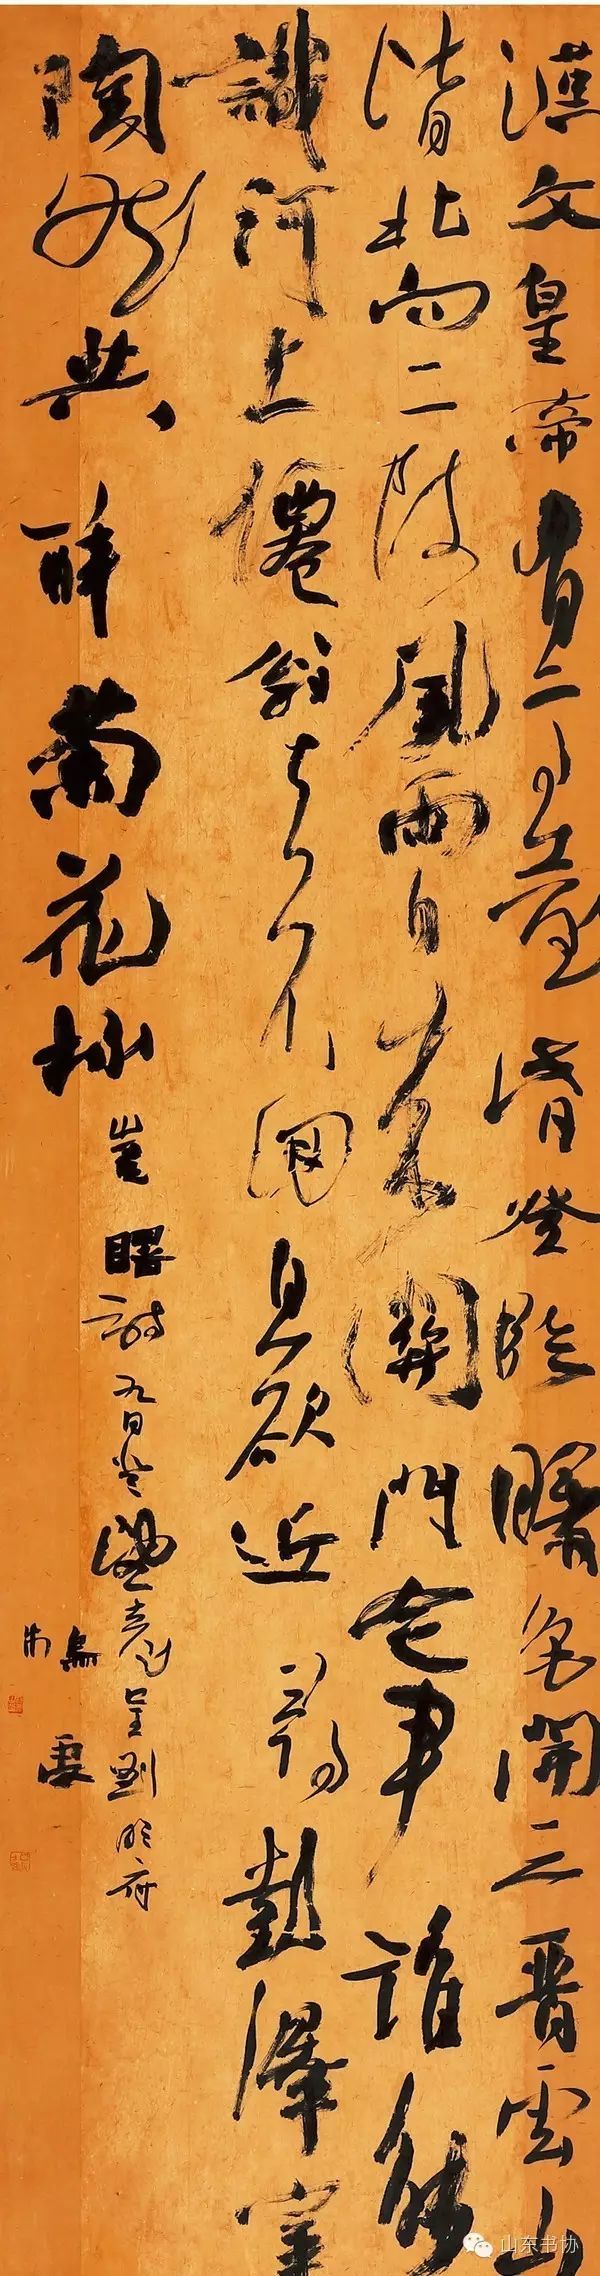 漢文皇帝有高臺此日登臨曙色開三晉雲山
皆北向二陵風雨自東來關門令尹誰能
識河上僊翁去不回且欲近尋彭澤宰
陶然共醉菊花杯
崔曙詩九日登望仙臺呈劉明府
山东书协